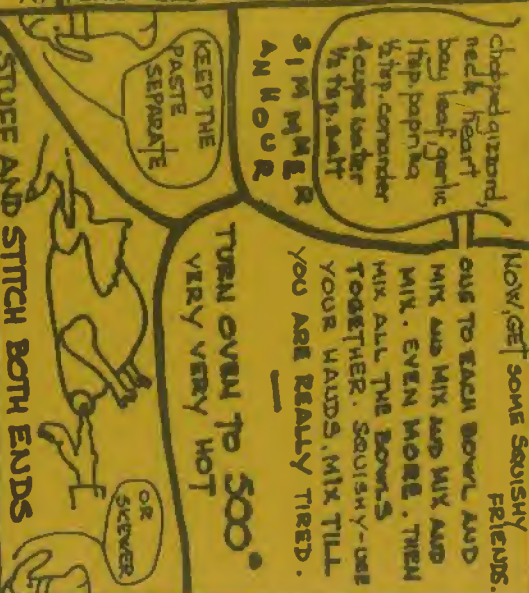 chopped gizzard,
neck heart
bay leaf garlic
1 tsp. paprika
½ tsp. coriander
4 cups water
½ tsp. salt
SIMMER
AN HOUR
NOW, GET SOME SQUISHY
FRIENDS.
ONE TO EACH BOWL AND
MIX AND MIX AND MIX AND
MIX. EVEN MORE. THEN
MIX ALL THE BOWLS
TOGETHER. SQUISHY-USE
YOUR HANDS. MIX TILL
YOU ARE REALLY TIRED.
KEEP THE
PASTE
SEPARATE
TURN OVEN TO 500°
VERY VERY HOT
STUFF AND STITCH BOTH ENDS
OR
SKEWER